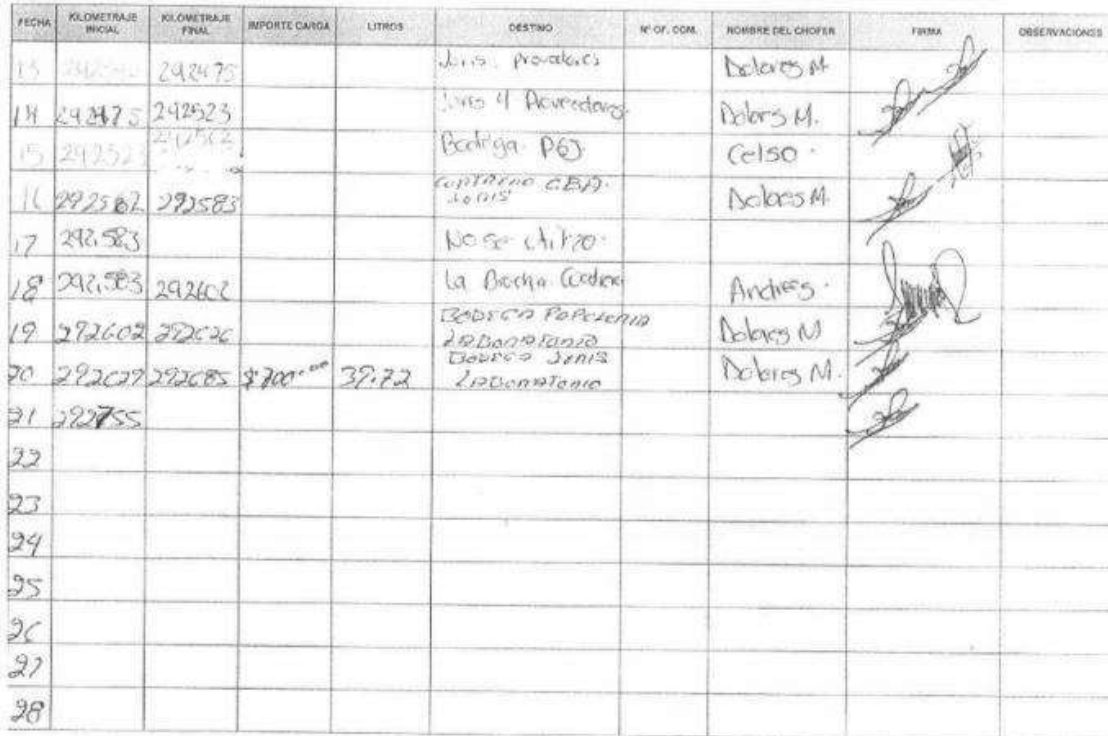 FECHA KILOMETRAJE INICIAL KILOMETRAJE FINAL IMPORTE CARGA LITROS DESTINO Nº OF. COM. NOMBRE DEL CHOFER FIRMA OBSERVACIONES
13 292475 Juris. Dolores M
14 292475 292523 Juris y Proveedores. Dolores M.
15 292523 292562 Bodega PGJ Celso.
16 292562 292583 CBA. Dolores M.
Juris
17 292,583 No se utilizo.
18 292,583 292602 La Brocha Andres.
19 292602 292626 BODEGA PAPELERIA Dolores M
LABORATORIO
20 292627 292685 $700.00 39.72 BODEGA JURIS Dolores M.
LABORATORIO
21 292755
22
23
24
25
26
27
28